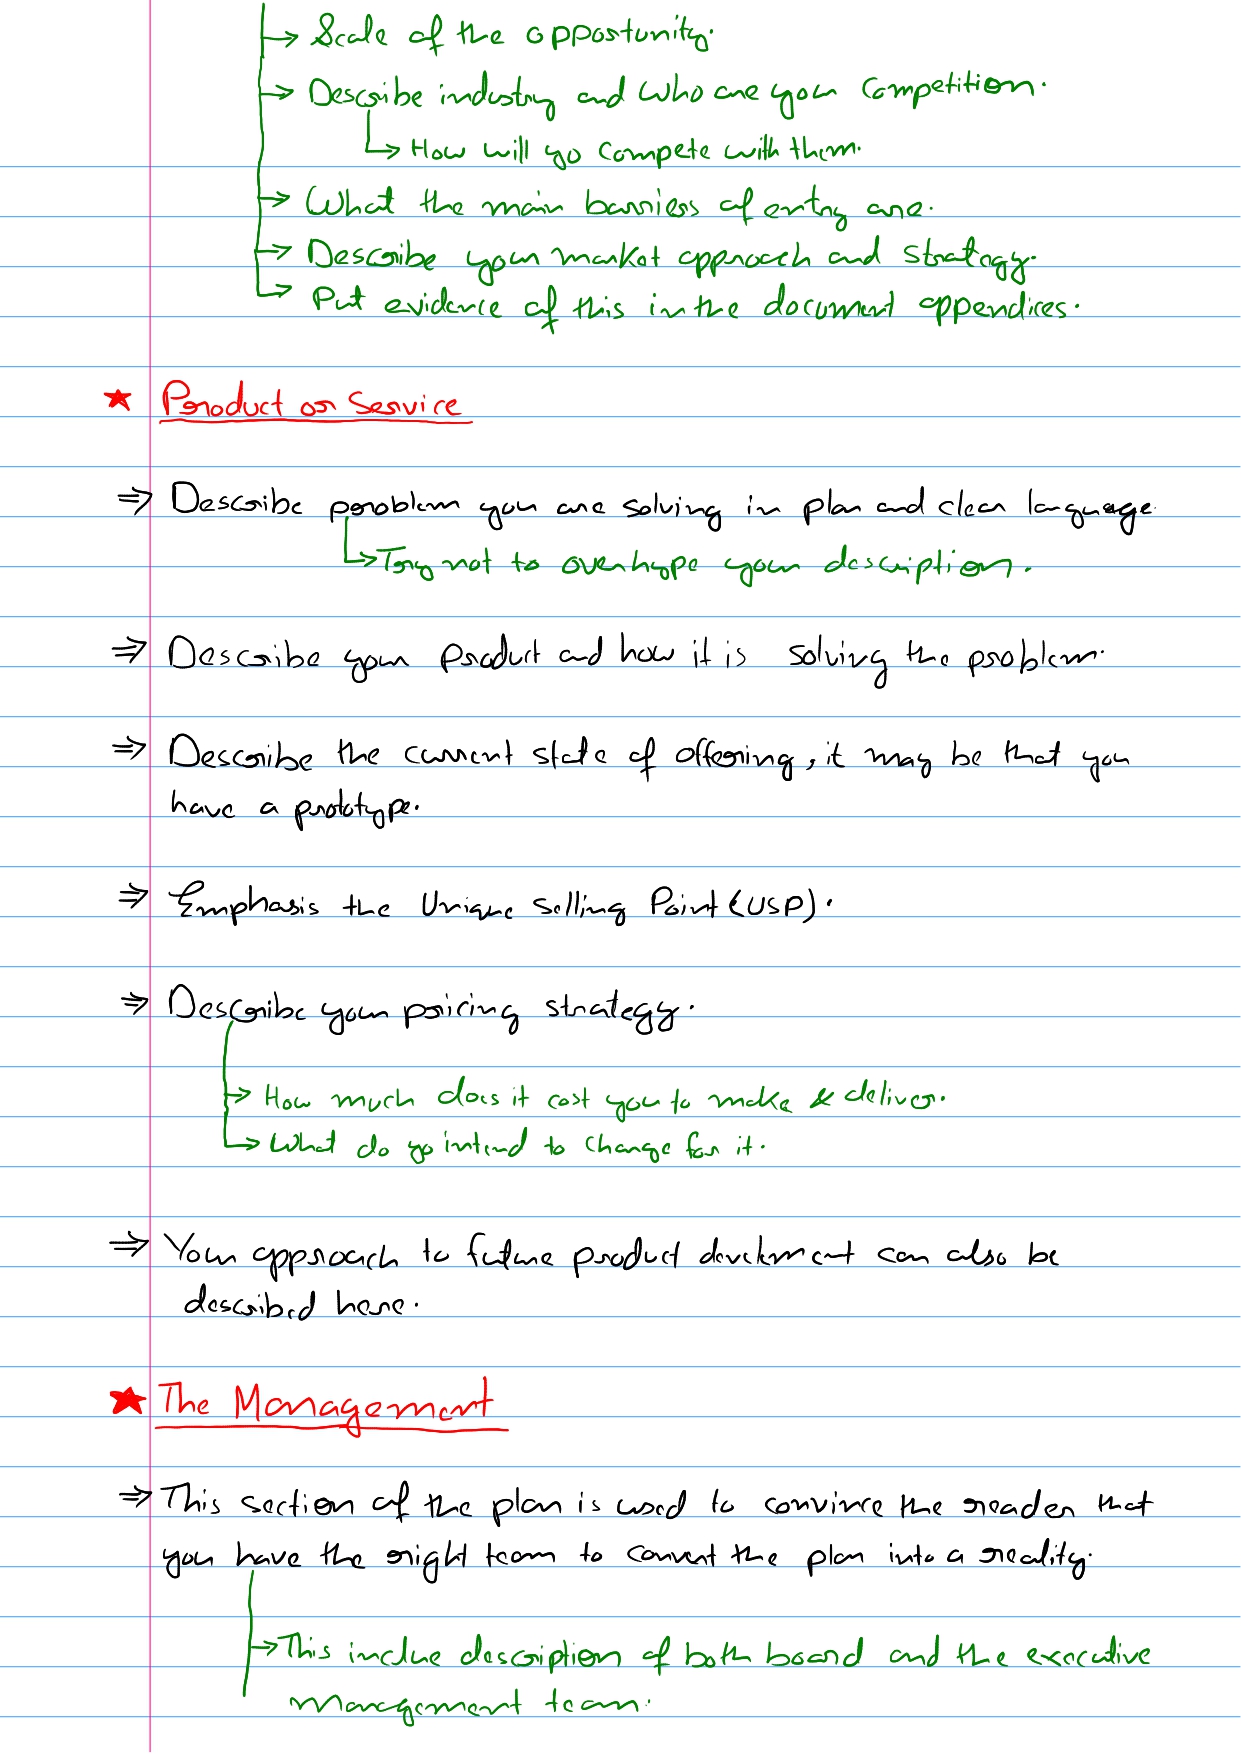 → Scale of the opportunity.
→ Describe industry and who are your competition.
→ How will yo compete with them.
→ What the main barriers of entry are.
→ Describe your market approach and strategy.
Put evidence of this in the document appendices.
★ Product or Service
⇒ Describe problem you are solving in plan and clear language.
→ Try not to overhype your description.
⇒ Describe your product and how it is solving the problem.
⇒ Describe the current state of offering, it may be that you
have a prototype.
⇒ Emphasis the Unique Selling Point (USP).
⇒ Describe your pricing strategy.
→ How much does it cost you to make & deliver.
→ What do yo intend to charge for it.
⇒ Your approach to future product develement can also be
described here.
★ The Management
⇒ This section of the plan is used to convince the reader that
you have the right team to convert the plan into a reality.
→ This inclue description of both board and the executive
management team.